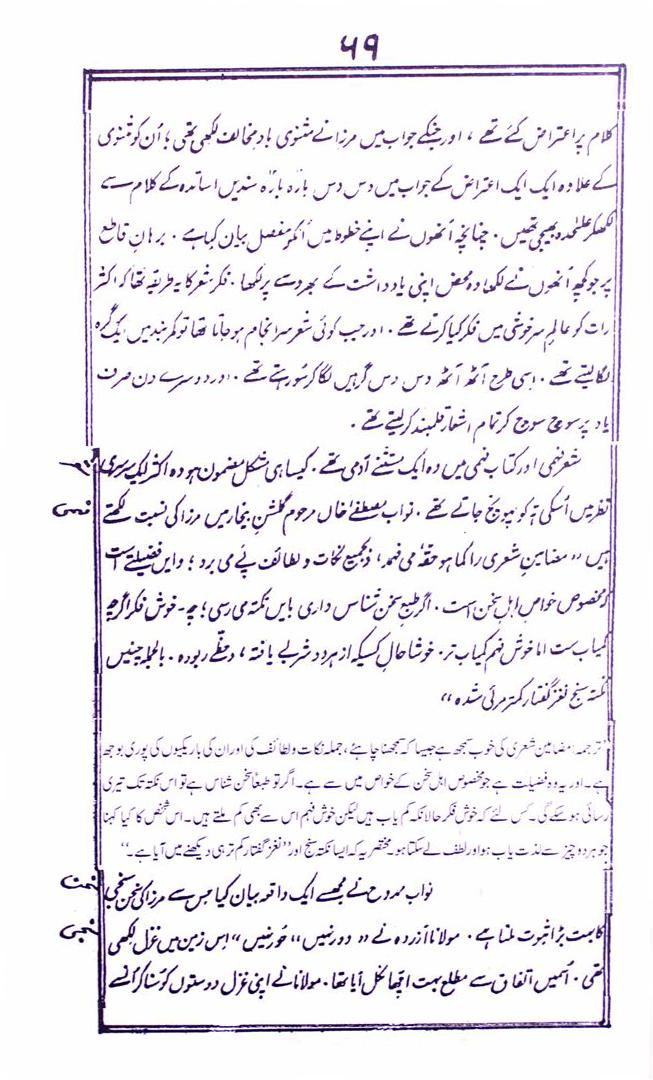 ۵۹
کلام پر اعتراض کئے تھے ، اور جنکے جواب میں مرزا نے مثنوی باد مخالف لکھی تھی ؛ اُن کو مثنوی
کے علاوہ ایک ایک اعتراض کے جواب میں دس دس بارہ بارہ سندیں اساتذہ کے کلام سے
لکھکر علیحدہ بھیجی تھیں . چنانچہ اُنھوں نے اپنے خطوط میں اُسکو مفصل بیان کیا ہے . برہانِ قاطع
پر جو کچھ اُنھوں نے لکھا وہ محض اپنی یادداشت کے بھروسے پر لکھا . فکرِ شعر کا یہ طریقہ تھا کہ اکثر
رات کو عالمِ سرخوشی میں فکر کیا کرتے تھے . اور جب کوئی شعر سرانجام ہو جاتا تھا تو کمربند میں ایک گرہ
لگا لیتے تھے . اسی طرح آٹھ آٹھ دس دس گرہیں لگا کر سو رہتے تھے . اور دوسرے دن صرف
یاد پر سوچ سوچ کر تمام اشعار قلمبند کر لیتے تھے .
شعر فہمی اور کتاب فہمی میں وہ ایک مستثنےٰ آدمی تھے . کیسا ہی مشکل مضمون ہو وہ اکثر ایک سرسری
نظر میں اُسکی تہ کو پہونچ جاتے تھے . نواب مصطفےٰ خاں مرحوم گلشنِ بیخار میں مرزا کی نسبت لکھتے
ہیں " مضامینِ شعری را کما ہو حقہٗ می فہمد ، و بجمیع نکات و لطائف پے می برد ؛ و ایں فضیلتے است
کہ مخصوص خواصِ اہلِ سخن است . اگر طبعِ سخن شناس داری بایں نکتہ می رسی ؛ چہ - خوش فکر اگرچہ
کمیاب ست اما خوش فہم کمیاب تر . خوشا حالِ کسیکہ از ہر دو شربے یافتہ ، و حظّے ربودہ . بالجملہ چنیں
نکتہ سنج نغز گفتار کمتر مرئی شدہ "
"ترجمہ : مضامین شعری کی خوب سمجھ ہے جیسا کہ سمجھنا چاہئے، جملہ نکات و لطائف کی اور ان کی باریکیوں کی پوری بوجھ
ہے۔ اور یہ وہ فضیلت ہے جو مخصوص اہل سخن کے خواص میں سے ہے۔ اگر تو طبعاً سخن شناس ہے تو اس نکتہ تک تیری
رسائی ہو سکے گی۔ کس لئے کہ خوش فکر حالانکہ کم یاب ہیں لیکن خوش فہم اس سے بھی کم ملتے ہیں۔ اس شخص کا کیا کہنا
جو ہر دو چیز سے لذت یاب ہو اور لطف لے سکتا ہو۔ مختصر یہ کہ ایسا نکتہ سنج اور "نغز گفتار کم تر ہی دیکھنے میں آیا ہے۔"
نواب ممدوح نے مجھسے ایک واقعہ بیان کیا جس سے مرزا کی سخن سنجی
کا بہت بڑا ثبوت ملتا ہے . مولانا آزردہ نے " دور نہیں" "حور نہیں" اس زمین میں غزل لکھی
تھی . اُسمیں اتفاق سے مطلع بہت اچھا نکل آیا تھا . مولانا نے اپنی غزل دوستوں کو سنا کر اُنسے